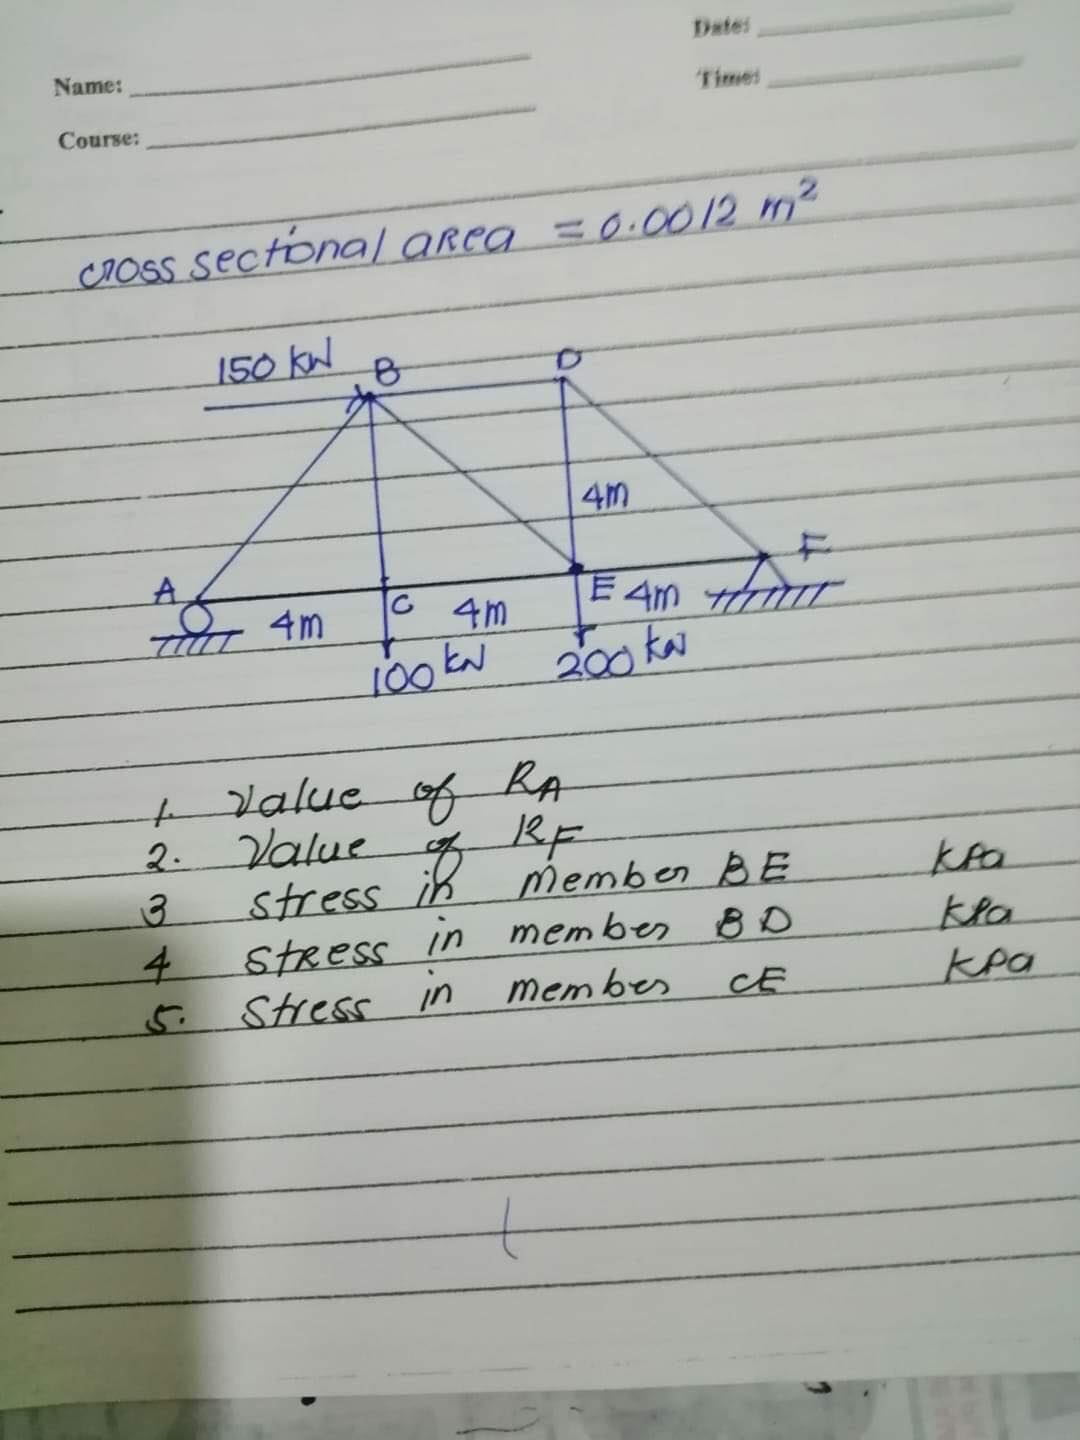 Date:
Name:
Time:
Course:
cross sectional area = 0.0012 m²
150 kN B D
4m
A C E F
4m 4m 4m
100 kN 200 kN
1. Value of RA
2. Value of RF
3 stress in member BE kPa
4 stress in member BD kPa
5. stress in member CE kPa